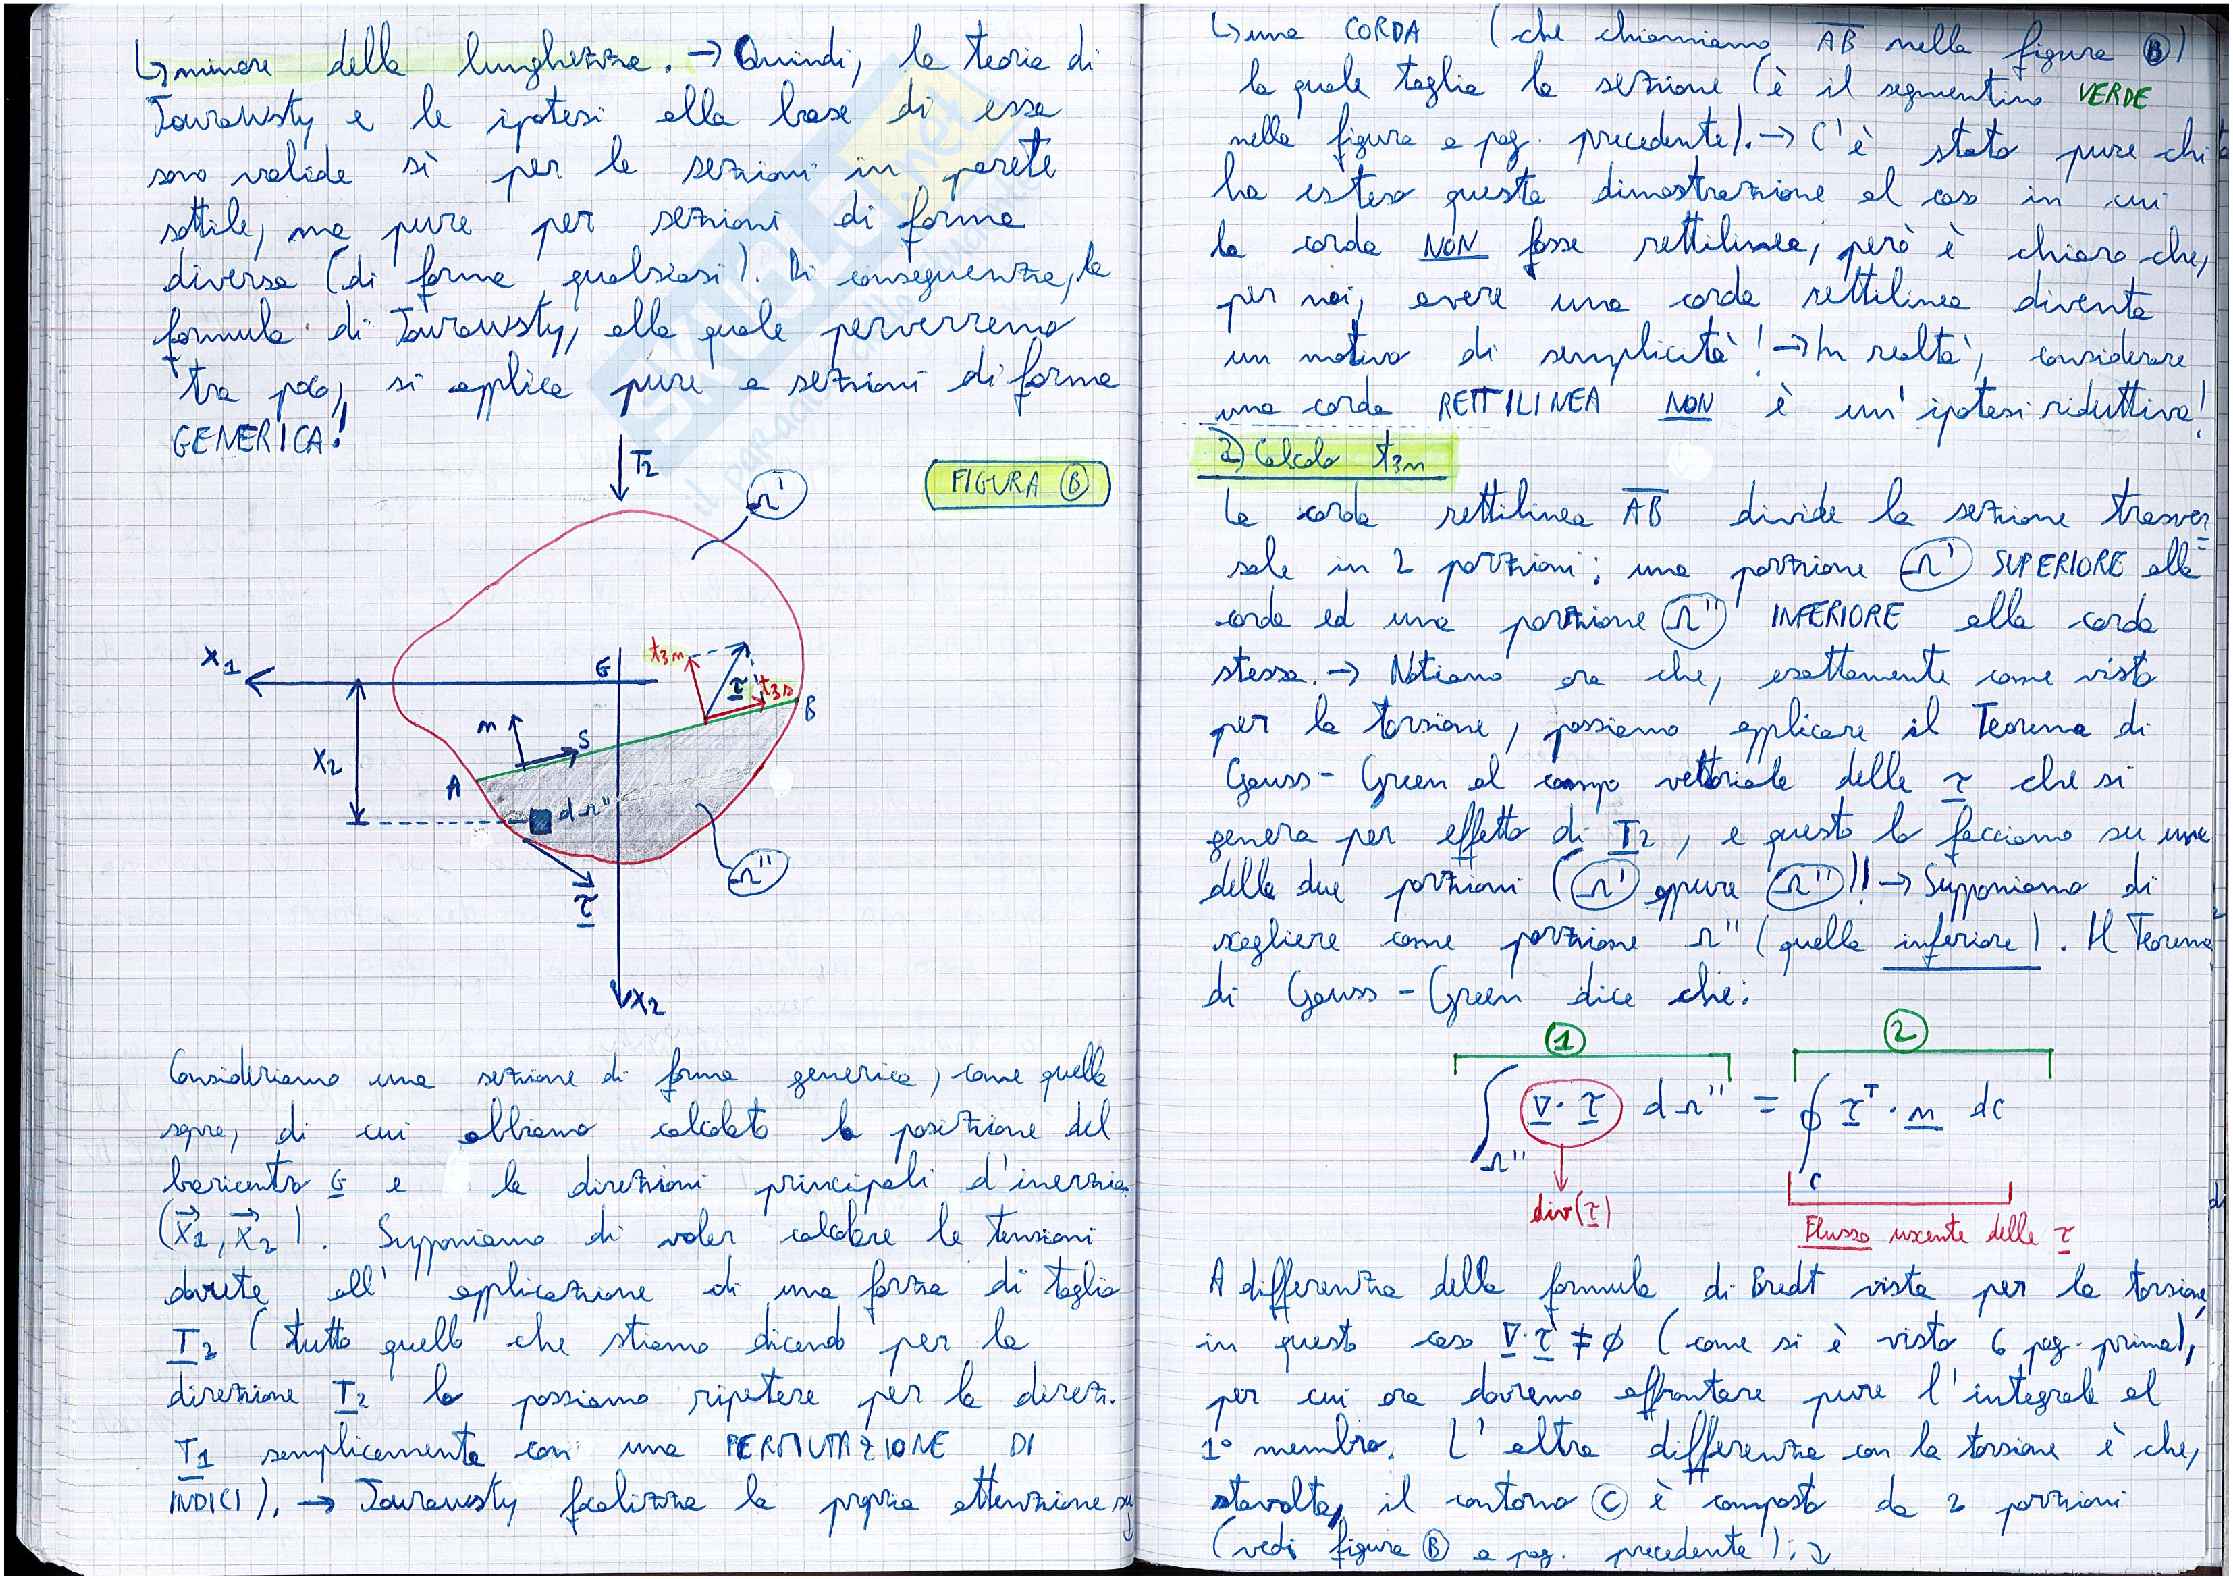 ↳ minore della lunghezza. → Quindi, la teoria di
Jourawsky e le ipotesi alla base di essa
sono valide sì per le sezioni in parete
sottile, ma pure per sezioni di forma
diversa (di forma qualsiasi). Di conseguenza, la
formula di Jourawsky, alla quale perverremo
tra poco, si applica pure a sezioni di forma
GENERICA!
T2
FIGURA B
Ω'
X1
G
t3n
τ
t3s
B
n
S
X2
A
dΩ''
Ω''
τ
X2
Consideriamo una sezione di forma generica, come quella
sopra, di cui abbiamo calcolato la posizione del
baricentro G e le direzioni principali d'inerzia
(X1, X2). Supponiamo di voler calcolare le tensioni
dovute all'applicazione di una forza di taglio
T2 (tutto quello che stiamo dicendo per la
direzione T2 lo possiamo ripetere per la direz.
T1 semplicemente con una PERMUTAZIONE DI
INDICI). → Jourawsky focalizza la propria attenzione su
↳ una CORDA (che chiamiamo AB nella figura B)
la quale taglia la sezione (è il segmentino VERDE
nella figura a pag. precedente). → C'è stato pure chi
ha esteso questa dimostrazione al caso in cui
la corda NON fosse rettilinea, però è chiaro che,
per noi, avere una corda rettilinea diventa
un motivo di semplicità! → In realtà, considerare
una corda RETTILINEA NON è un'ipotesi riduttiva!
2) Calcolo t3n
La corda rettilinea AB divide la sezione trasver=
sale in 2 porzioni: una porzione Ω' SUPERIORE alla
corda ed una porzione Ω'' INFERIORE alla corda
stessa. → Notiamo ora che, esattamente come visto
per la torsione, possiamo applicare il Teorema di
Gauss-Green al campo vettoriale delle τ che si
genera per effetto di T2, e questo lo facciamo su una
delle due porzioni (Ω' oppure Ω'')! → Supponiamo di
scegliere come porzione Ω'' (quella inferiore). Il Teorema
di Gauss-Green dice che:
1 2
∫Ω'' ∇·τ dΩ'' = ∮C τ^T · n dC
div(τ)
Flusso uscente delle τ
A differenza della formula di Bredt vista per la torsione,
in questo caso ∇·τ ≠ ϕ (come si è visto 6 pag. prima),
per cui ora dovremo affrontare pure l'integrale al
1° membro. L'altra differenza con la torsione è che,
stavolta, il contorno C è composto da 2 porzioni
(vedi figura B a pag. precedente): ↴